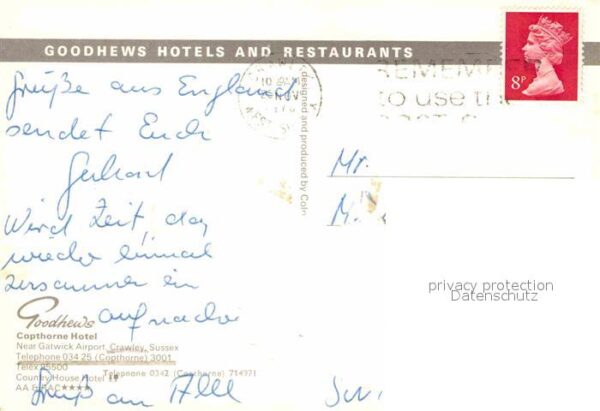 GOODHEWS HOTELS AND RESTAURANTS
8P
REMEMBE
to use the
NOV
designed and produced by Coln
Grüße aus England
sendet Euch
Gerhard
Wird Zeit, daß
wieder einmal
zusammen ein
Mr.
M.
privacy protection
Datenschutz
Goodhews
Copthorne Hotel
Near Gatwick Airport, Crawley, Sussex
Telephone 034 25 (Copthorne) 3001
Telex 95500
Telephone 0342 (Copthorne) 714971
Country House Hotel
AA & RAC ★★★★
Gruß an Alle